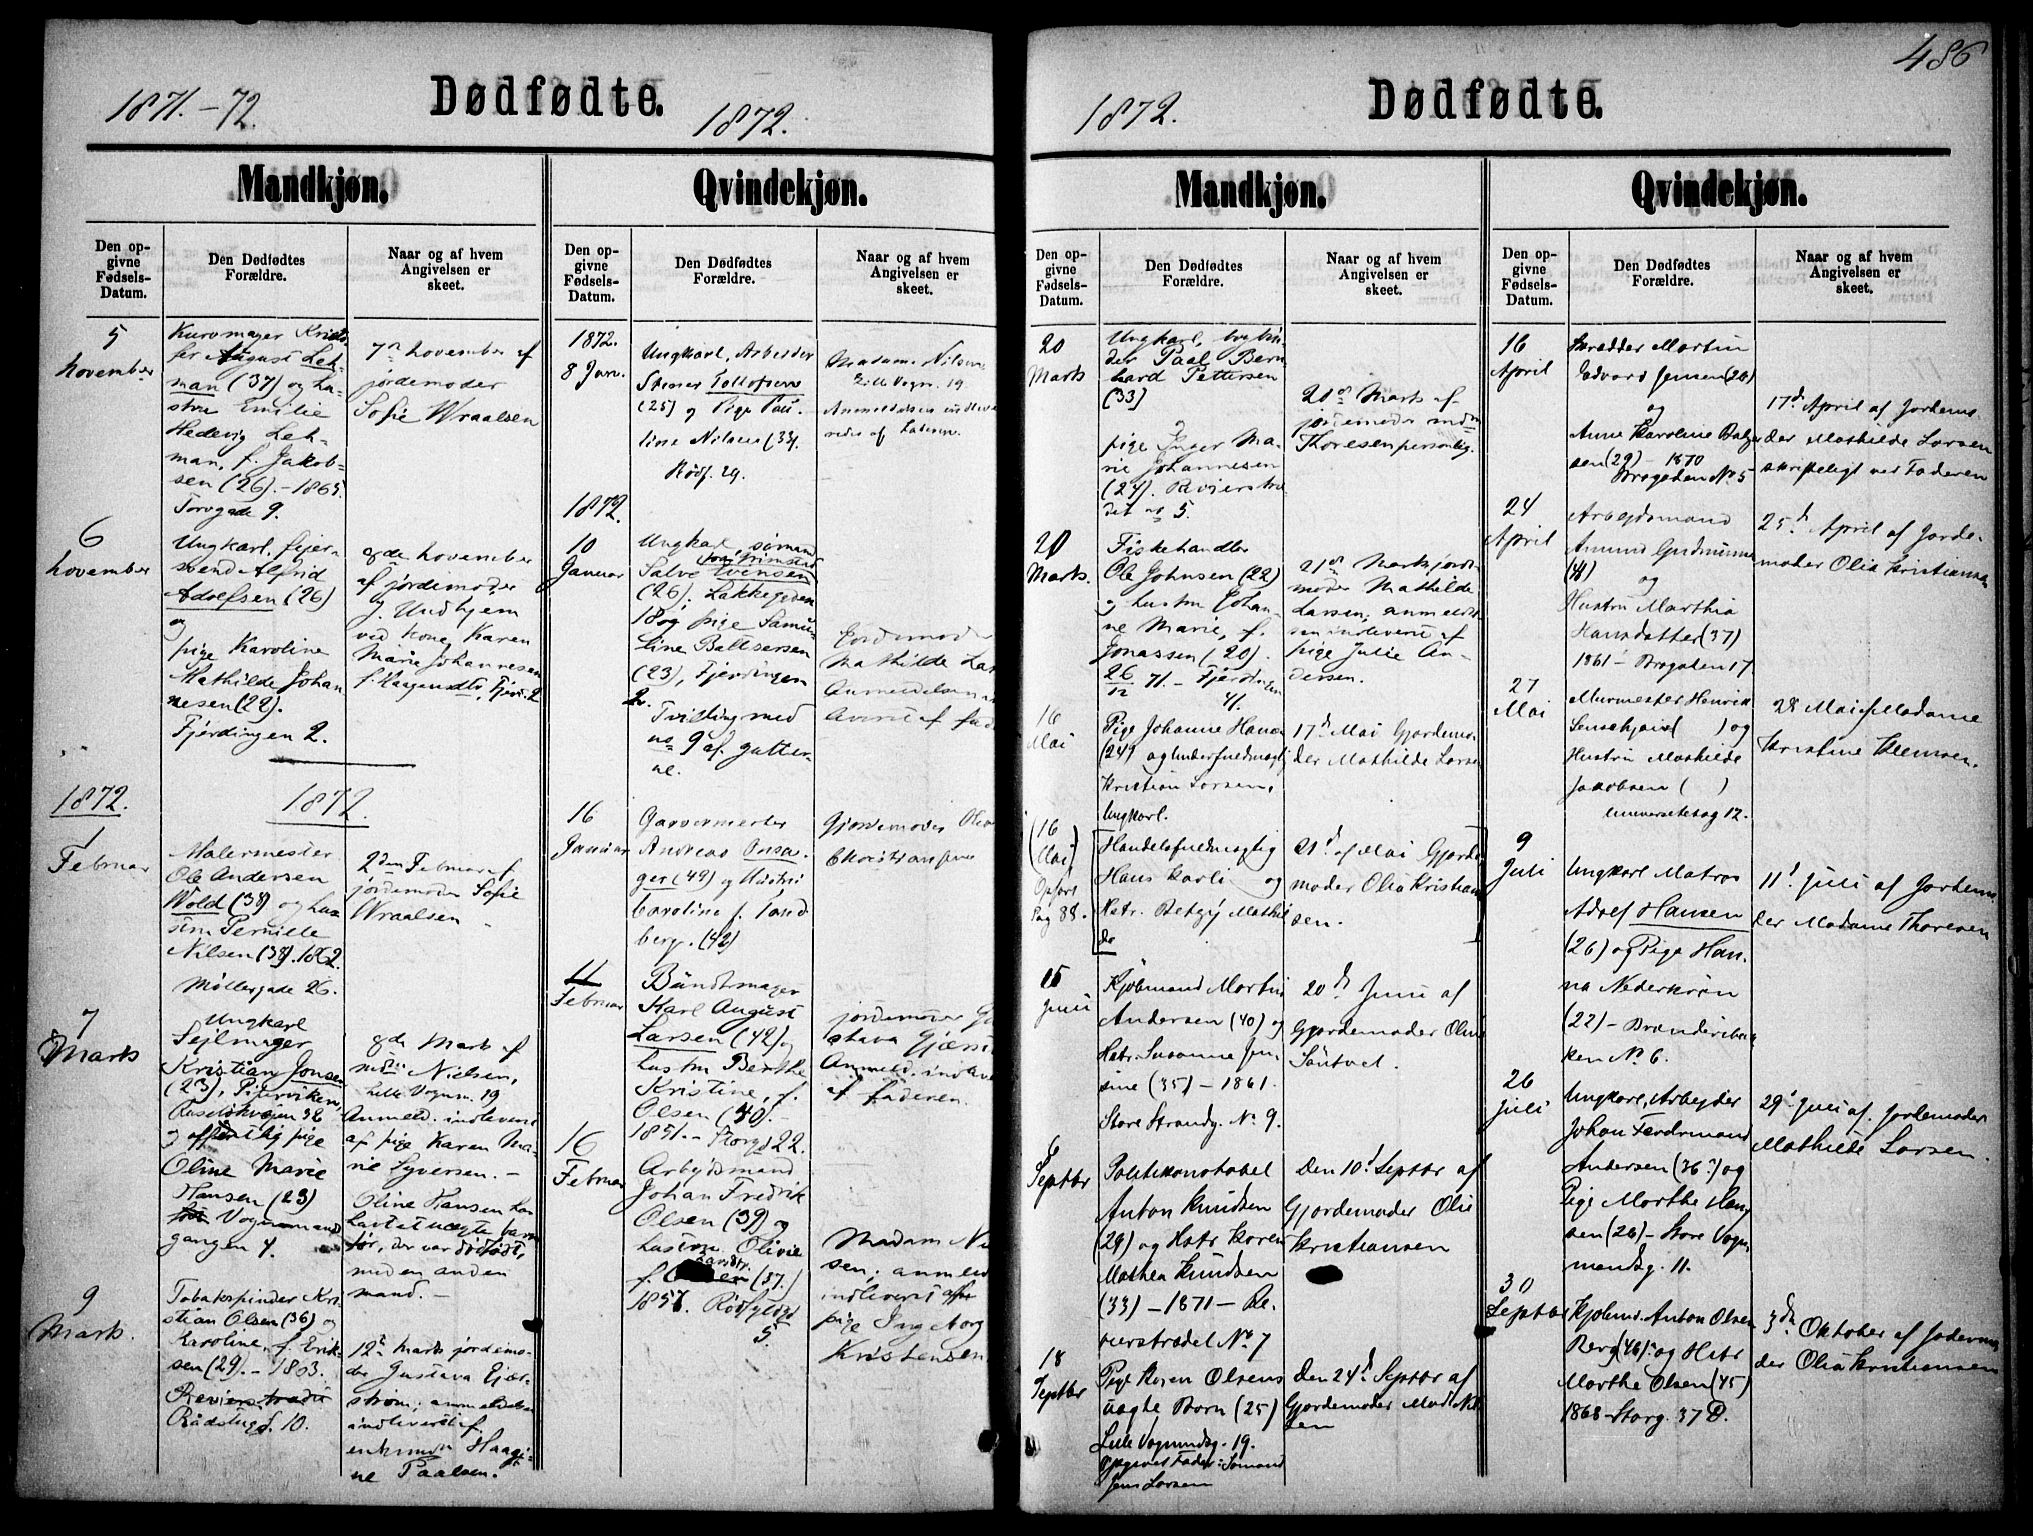 1871.-72.
Dødfødte.
1872.
Mandkjøn.
Qvindekjøn.
Den op-
givne
Fødsels-
Datum.
Den Dødfødtes
Forældre.
Naar og af hvem
Angivelsen er
skeet.
Den op-
givne
Fødsels-
Datum.
Den Dødfødtes
Forældre.
Naar og af hvem
Angivelsen er
skeet.
5
November
Kurvmager
August Leh-
man (37) og
Emilie
Hedevig Leh-
man, f. Jakob-
sen (26).- 1865.
Torvgade 9.
7de November af
jordemoder
Sofie Wraalsen
6
November
Ungkarl,
Alfrid
Adolfsen (26)
og
pige Karoline
Mathilde Johan
nesen (22).
Fjerdingen 2.
November
af jordemoder
vid Kone Karen
Marie Johannesen
f. Fjerd. 2
1872.
1872.
1
Februar
Malermester
Ole Andersen
Wold (38) og hu
stru Pernille
Nilsen (38). 1862.
Møllergade 26.
2den Februar af
jordemoder Sofie
Wraalsen
7
Marts
Ungkarl
Sejlmager
Kristian Jonsen
(23), Pipervikens
og pige
Oline Marie
Hansen (23)
Vognmands
gangen 4.
8de Mark af
Nielsen,
Lille Vognm. 19
Anmeld. indleveret
af pige Karen Ma-
rie Syversen. -
Oline Hansen har
havt et uægte barn
før, der var dødfødt,
med en anden
mand. -
9
Marts.
Tobakspinder Kri-
stian Olsen (36) og
Karoline, f. Erik-
sen (29). - 1863.
Rådstugd. 10.
12te Marts jordemo-
der Gustava Gjær-
strøm; anmeldelsen
indleveret af
Haagi-
ne Paalsen.
1872.
8 Jan.
Ungkarl, Arbeider
Stener Tollofsen
(25) og Pige Pau-
line Nilsen (33).
Rødf. 29.
Madam Nilsen
Lille Vogn. 19
Anmeldelsen indleve
redes af Faderen.
1872.
10
Januar
Ungkarl, sømand
fra Grimstad
Salve Evensen
(26). Lakkegaden
18 og pige Samu-
line Baltsersen
(23), Fjerdingen
2.
Tvilling med
no 9 af gutter-
ne.
Jordemoder
Mathilde Lar
Anmeldelsen in
leveret af fad
16
Januar
Garvermester
Andreas Onsa-
ger (49) og Hustru
Caroline f. Sand
berg. (42)
Gjordemoder Olea
Christiansen
11
Februar
Bundtmager
Karl August
Larsen (42) og
hustru Berthe
Kristine, f.
Olsen (40). -
1851. - Storgd. 22.
jordemoder Gu
stava Gjærs
Anmeld. indleve
af faderen.
16
Februar
Arbejdsmand
Johan Fredrik
Olsen (39) og
hustru Olivie
f. (37.)
1857. Rødfyldgd
5.
Madam Ni
sen; anmeld
indleveret af
pige Ingeborg
Kristensen
486
1872.
Dødfødte.
Mandkjøn.
Qvindekjøn.
Den op-
givne
Fødsels-
Datum.
Den Dødfødtes
Forældre.
Naar og af hvem
Angivelsen er
skeet.
Den op-
givne
Fødsels-
Datum.
Den Dødfødtes
Forældre.
Naar og af hvem
Angivelsen er
skeet.
20
Marts
Ungkarl, bogbin-
der Paal Bern
hard Pettersen
(33)
og
pige Inger Ma-
rie Johannesen
(24). Revierstræ
det no 5.
21de Marts af
jordemoder madm
Thoresen personlig.
20
Marts.
Fiskehandler
Ole Johnsen (22)
og hustru Johan-
ne Marie, f.
Jonassen (20).
26/12 71. - Fjerdingen
41.
21de Marts jorde
moder Mathilde
Larsen; anmeldel
sen indleveret af
pige Julie An-
dersen.
16
Mai
Pige Johanne Hans
(24) og Underfuldmægtig
Kristian Larsen,
Ungkarl.
17de Mai Gjordemo
der Mathilde Larsen
(16
Mai)
Opført
Pag 88.
Handelsfuldmægtig
Hans Karli og
Hstr. Betzy Mathil
de
21de af Mai Gjorde
moder Olia Kristian
sen.
15
Juni
Kjølmand Martin
Andersen (40) og
Hstr. Susanne Jen
sine (35) - 1861.
Store Strandg. No 9.
20de Juni af
Gjordemoder Oline
Søntvet.
6
Septbr
Politikonstabel
Anton Knudsen
(29) og Hstr Karen
Mathea Knudsen
(33) - 1871 - Re-
vierstrædet No 7
Den 10de Septbr af
Gjordemoder Olia
Kristiansen
18
Septbr
Pige Karen Olsens
uægte Barn (25)
Lille Vognmdsg. 19.
opgivet Fader: Sømand
Jens Larsen
Den 24de Septbr af
Gjordemoder Mad. Nil
sen
16
April
Skrædder Martin
Edvard Jensen (26)
og
Anne Karoline
sen (29) - 1870
Brogaden No 5
17de April af Jordemo
der Mathilde Larsen
skriftligt ved Faderen
24
April
Arbejdsmand
Amund Gudmunds
(41)
og
Hustru Marthia
Hansdatter (37)
1861 - Brogaden 17.
25de April af Jorde-
moder Olia Kristiansen
27
Mai
Murmester Henrik
( ) og
Hustru Mathilde
Jakobsen ( )
Universitetsg 12.
28 Mai af Madame
Kristine Klemsen.
9
Juli
Ungkarl Matros
Adolf Hansen
(26) og Pige Han-
na Nederkvern
(22) -
ken No 6.
11te Juli af Jordemo
der Madame Thoresen
26
Juli
Ungkarl, Arbejder
Johan Ferdinand
Andersen (36) og
Pige Marthe Han
sen (26) - Store Vogn-
mandsg. 11.
29de Juli af Jordemoder
Mathilde Larsen.
30
Septbr
Kjølmd. Anton Olsen
Berg (46) og Hstr
Marthe Olsen (45)
1868 - Storg. 37 D.
3die Oktober af Jordemo
der Olia Kristiansen